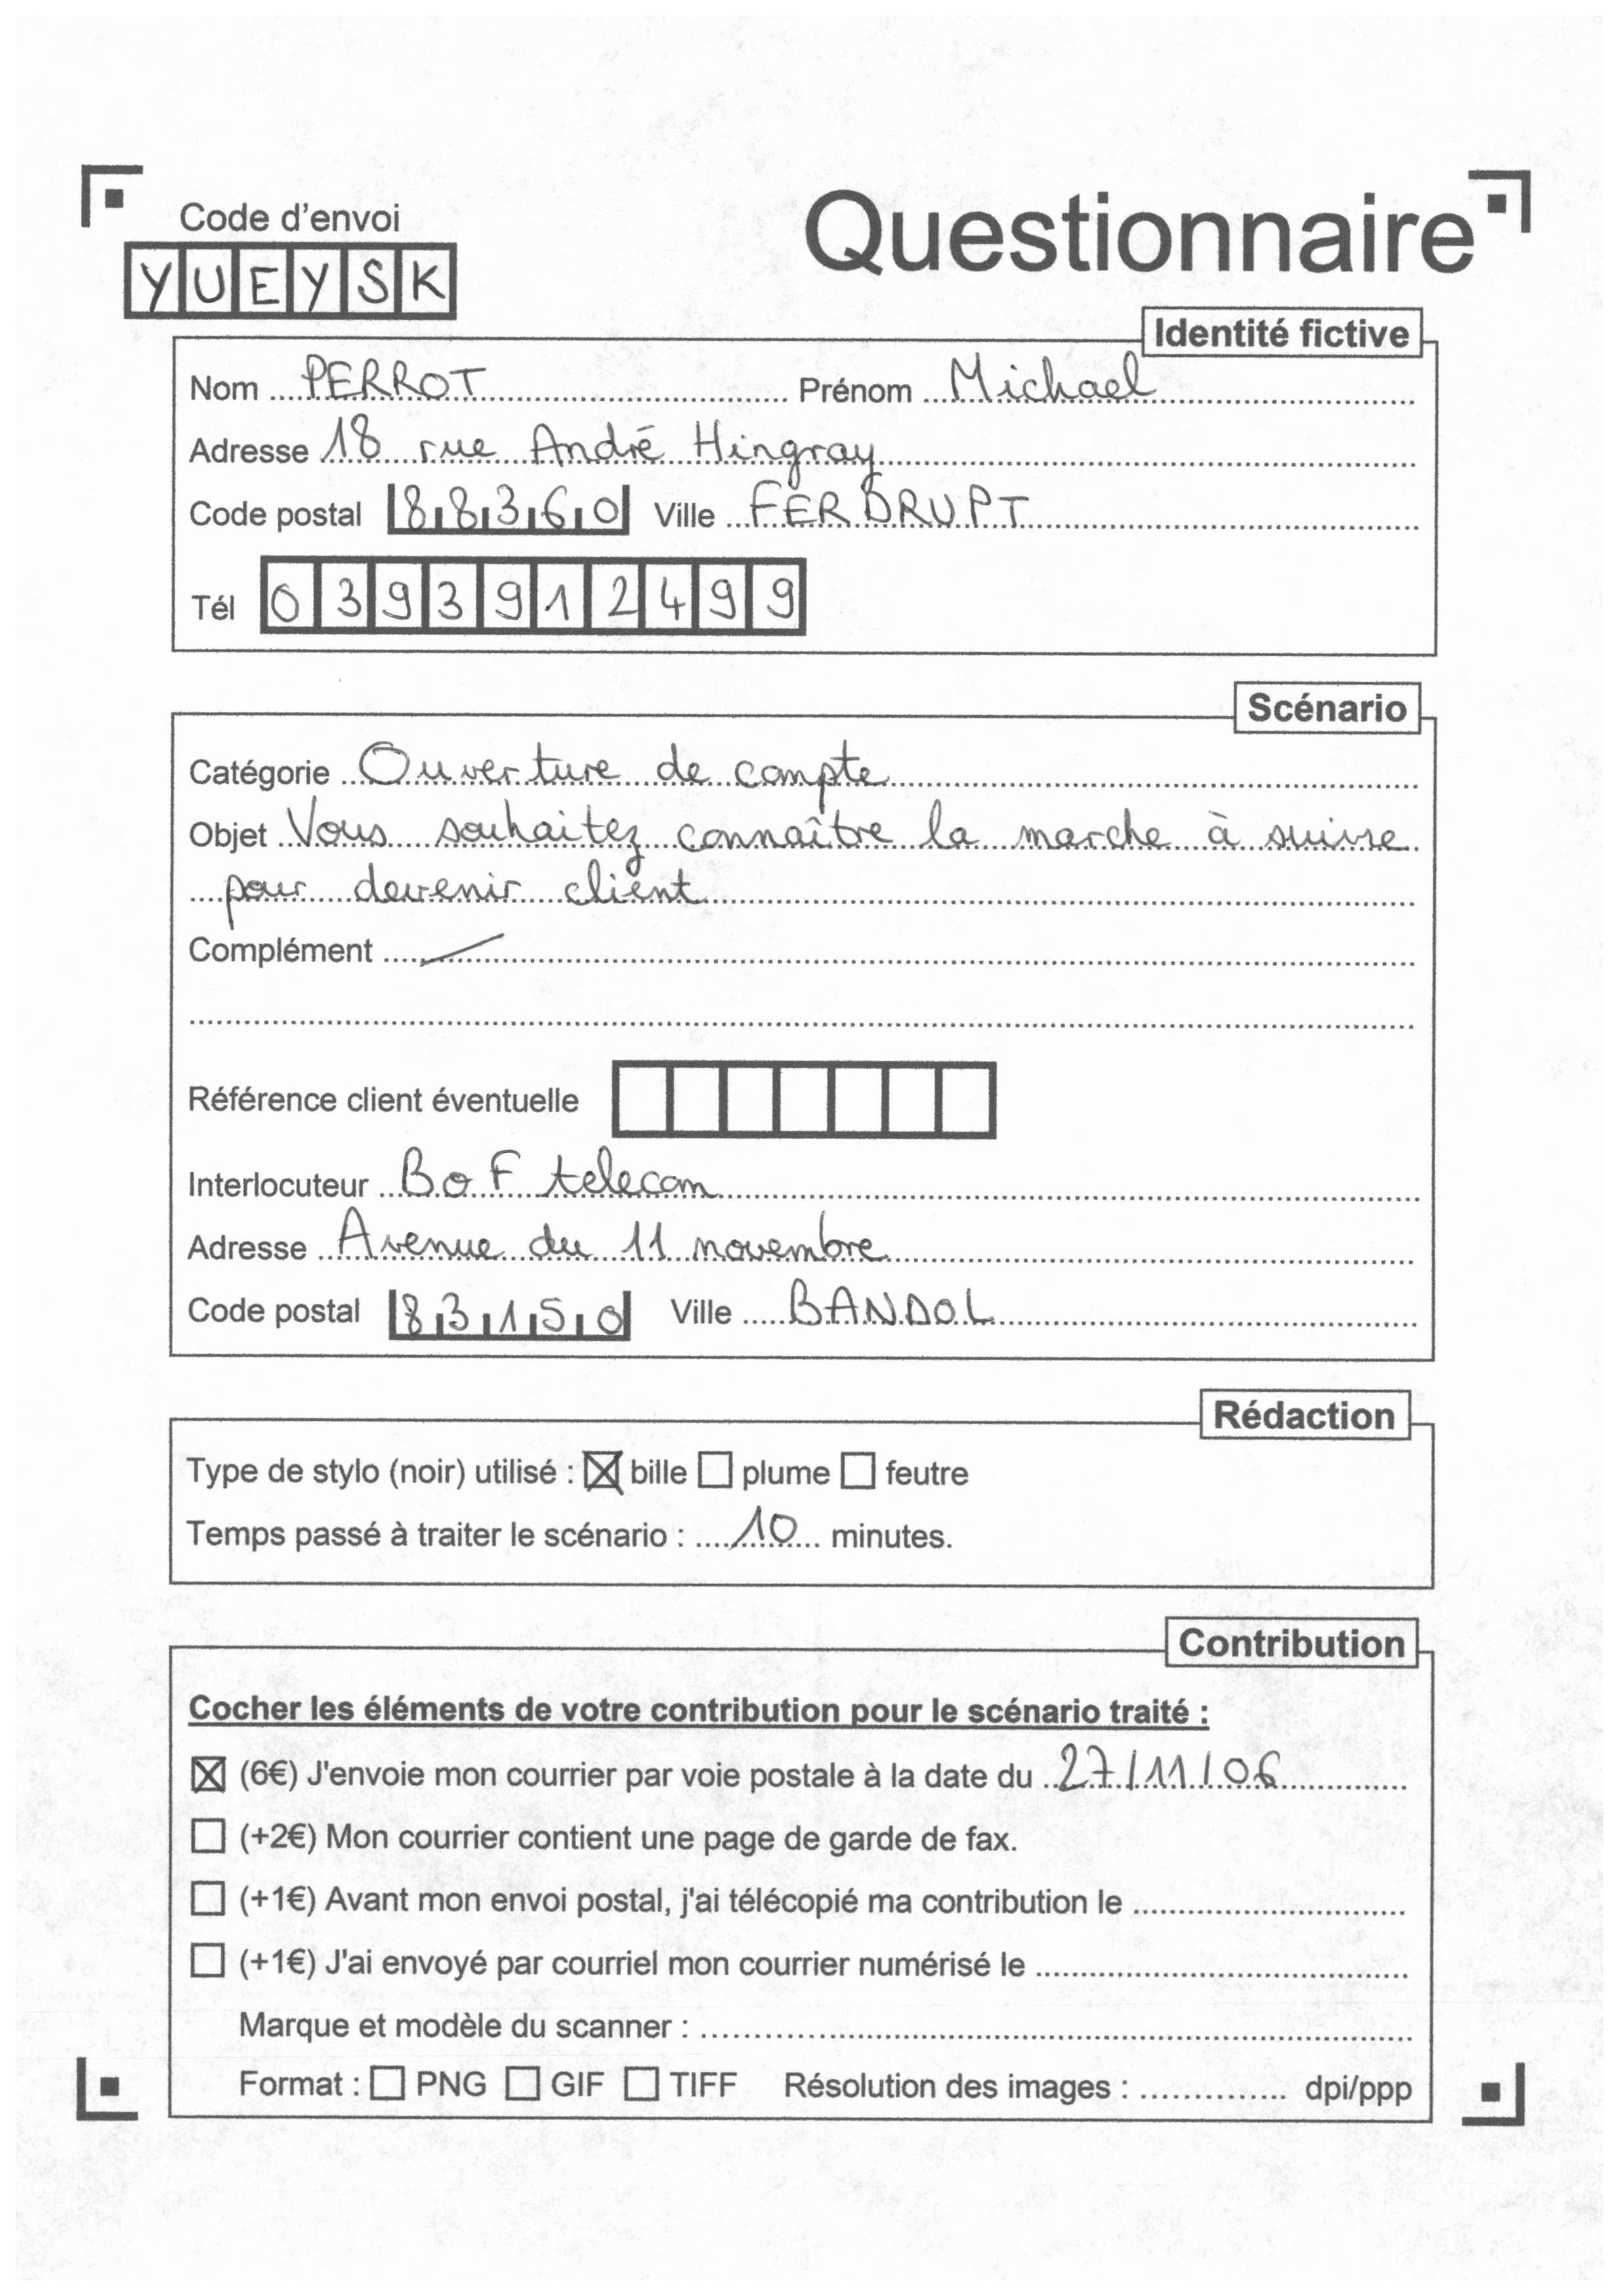 Questionnaire
Code d'envoi
YUEYSK
Identité fictive
Nom PERROT Prénom Michael
Adresse 18 rue André Hingray
Code postal 88360 Ville FERDRUPT
Tél 0393912499
Scénario
Catégorie Ouverture de compte
Objet Vous souhaitez connaître la marche à suivre
pour devenir client
Complément
Référence client éventuelle
Interlocuteur BoF telecom
Adresse Avenue du 11 novembre
Code postal 83150 Ville BANDOL
Rédaction
Type de stylo (noir) utilisé : bille plume feutre
Temps passé à traiter le scénario : 10 minutes.
Contribution
Cocher les éléments de votre contribution pour le scénario traité :
(6€) J'envoie mon courrier par voie postale à la date du 27/11/06
(+2€) Mon courrier contient une page de garde de fax.
(+1€) Avant mon envoi postal, j'ai télécopié ma contribution le
(+1€) J'ai envoyé par courriel mon courrier numérisé le
Marque et modèle du scanner :
Format : PNG GIF TIFF Résolution des images : dpi/ppp